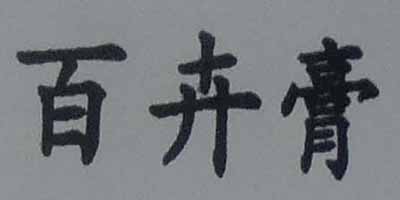 百卉膏